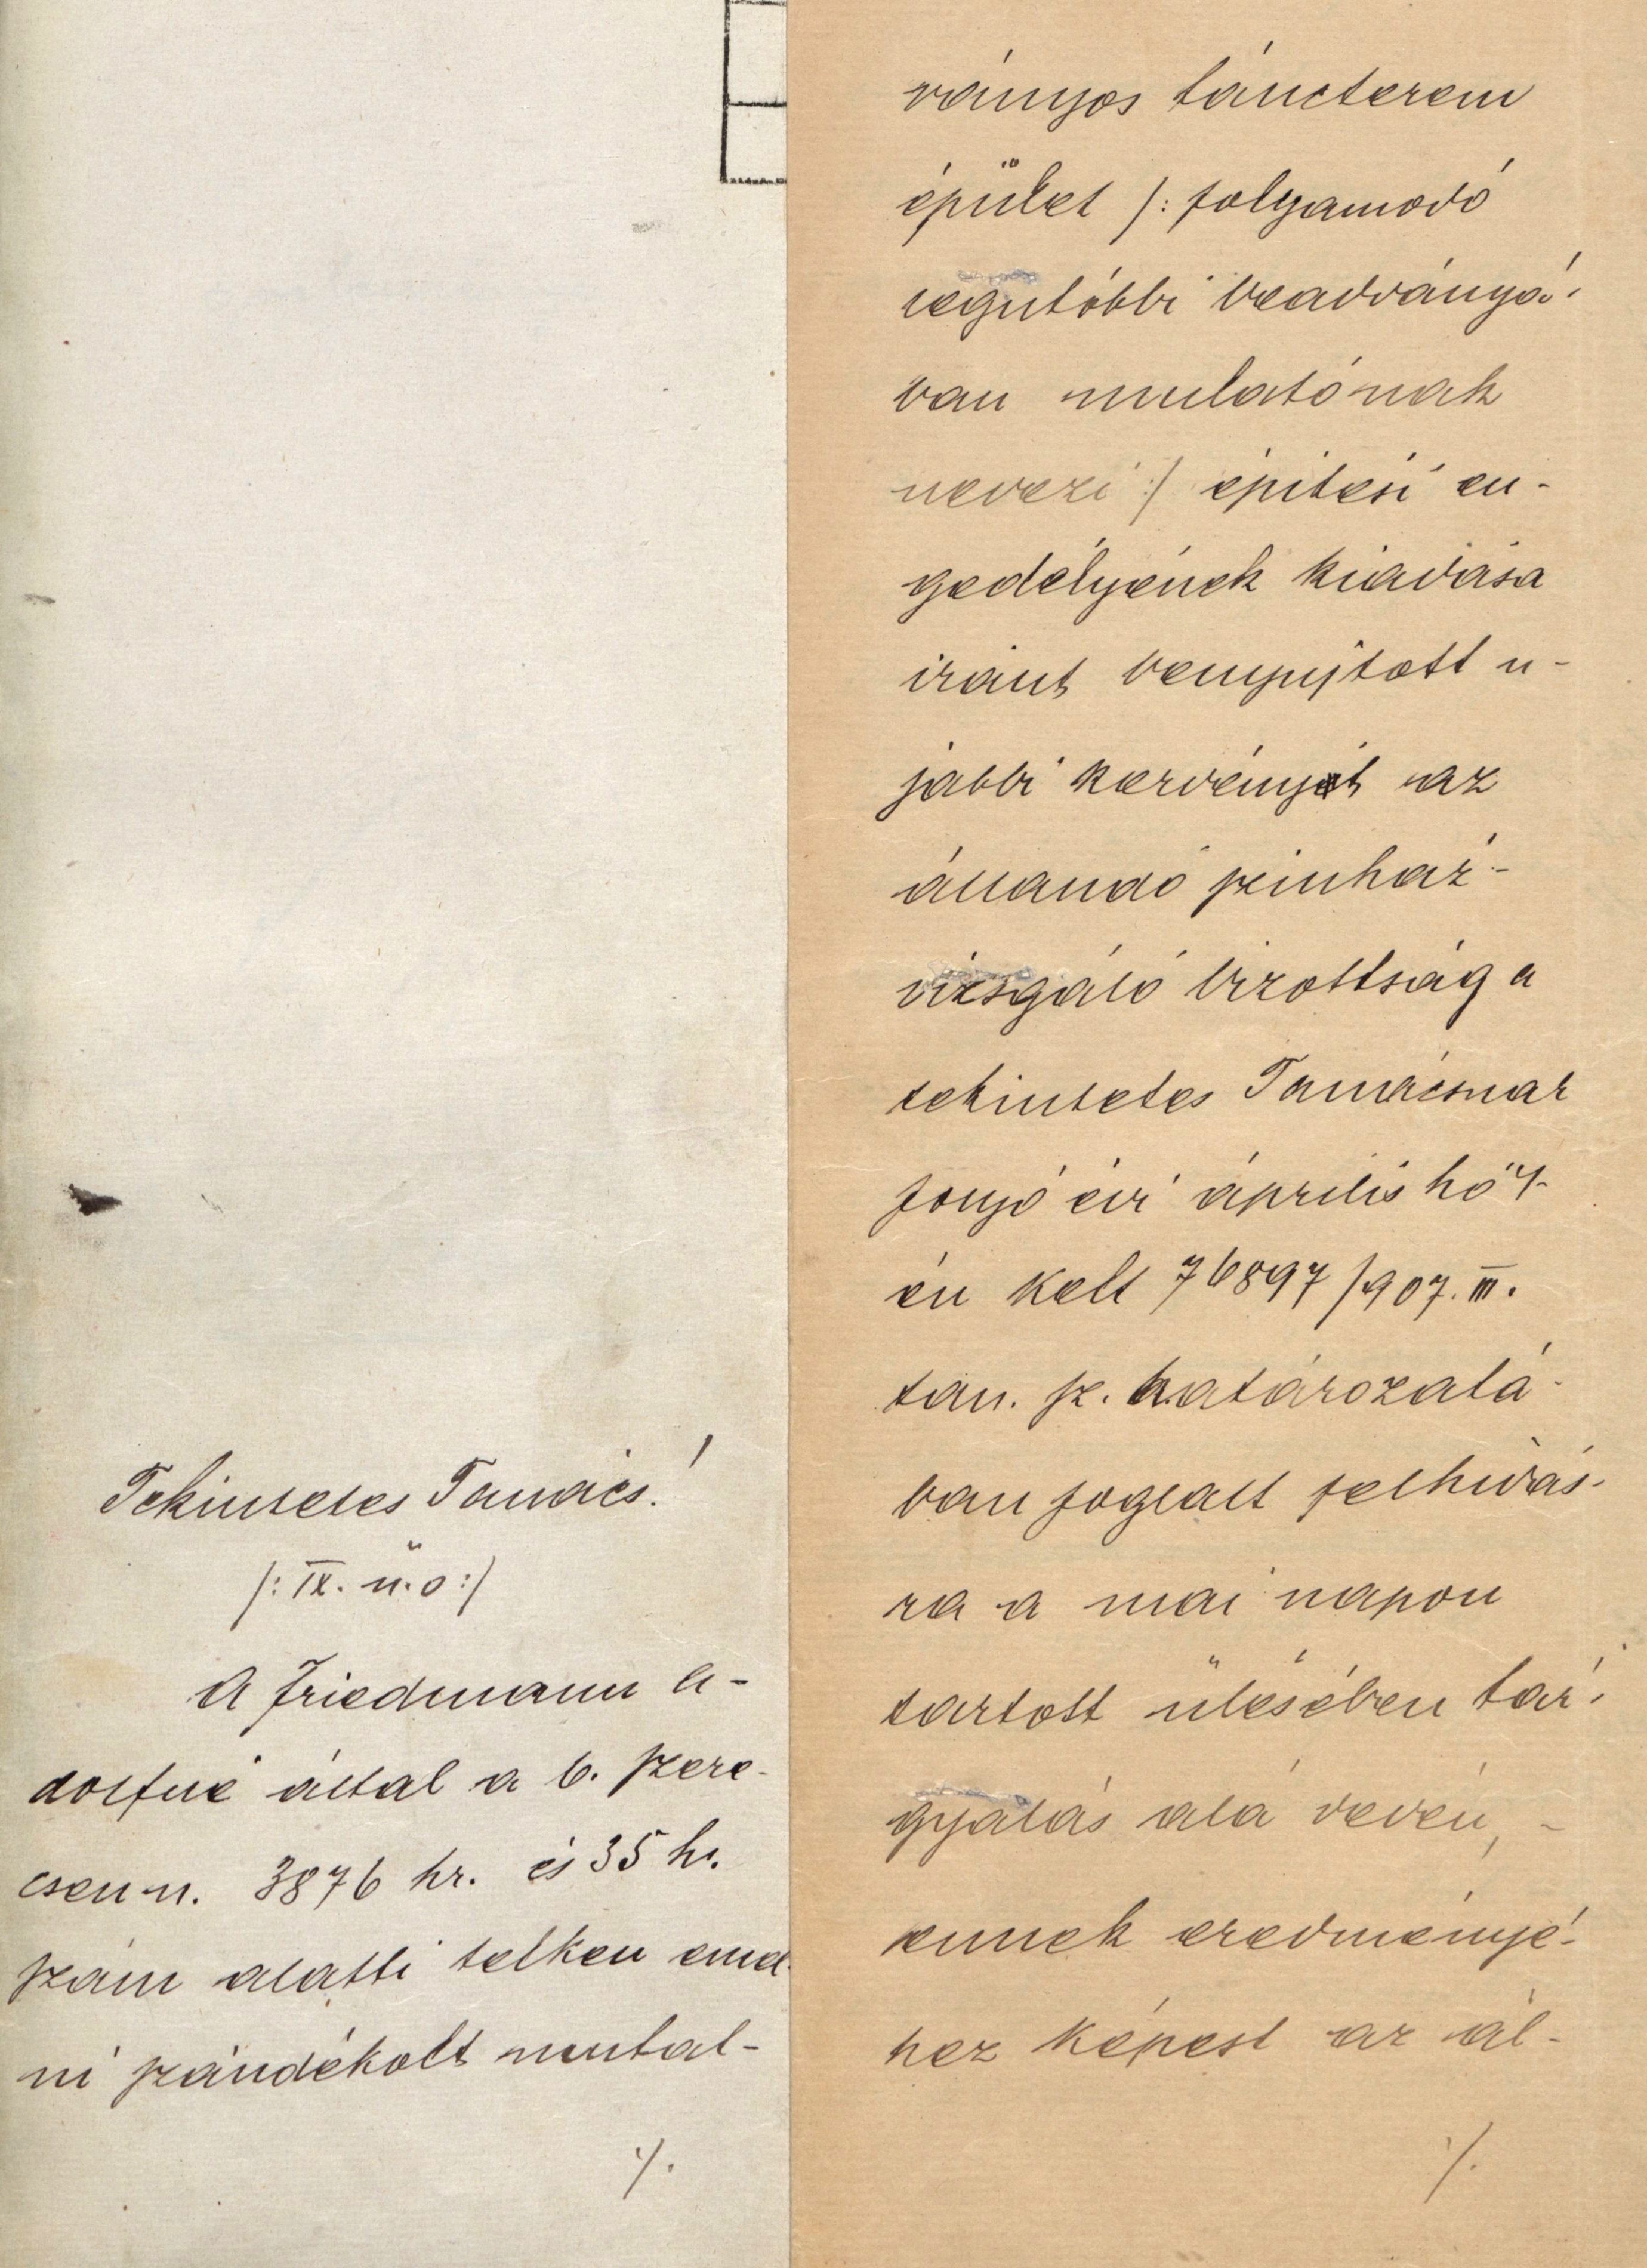 Tekintetes Tanács!
/: IX. ü. o :/
A Friedmann A-
dolfné által a b. szere-
csen u. 3876 hr. és 35 h.
szám alatti telken emel-
ni szándékolt mutat-
./.
ványos táncterem
épület /: folyamodó
legutóbbi beadványá-
ban mulatónak
nevezi :/ épitési en-
gedélyének kiadása
iránt benyujtott u-
jabbi kérvényét az
állandó szinház-
vizsgáló bizottság a
tekintetes Tanácsnak
folyó évi április hó 4-
én kelt 76897/907. III.
tan. sz. határozatá-
ban foglalt felhivás-
ra a mai napon
tartott ülésében tár-
gyalás alá vevén, -
ennek eredményé-
hez képest az ál-
./.